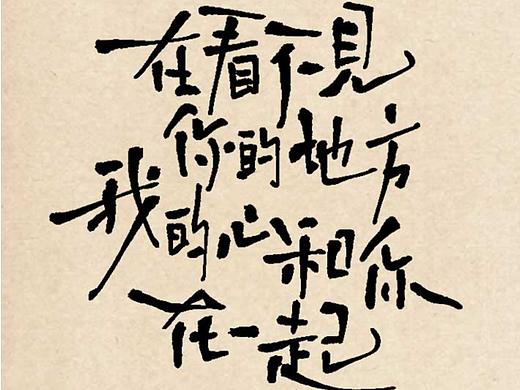 在看不見
你的地方
我的心和你
在一起